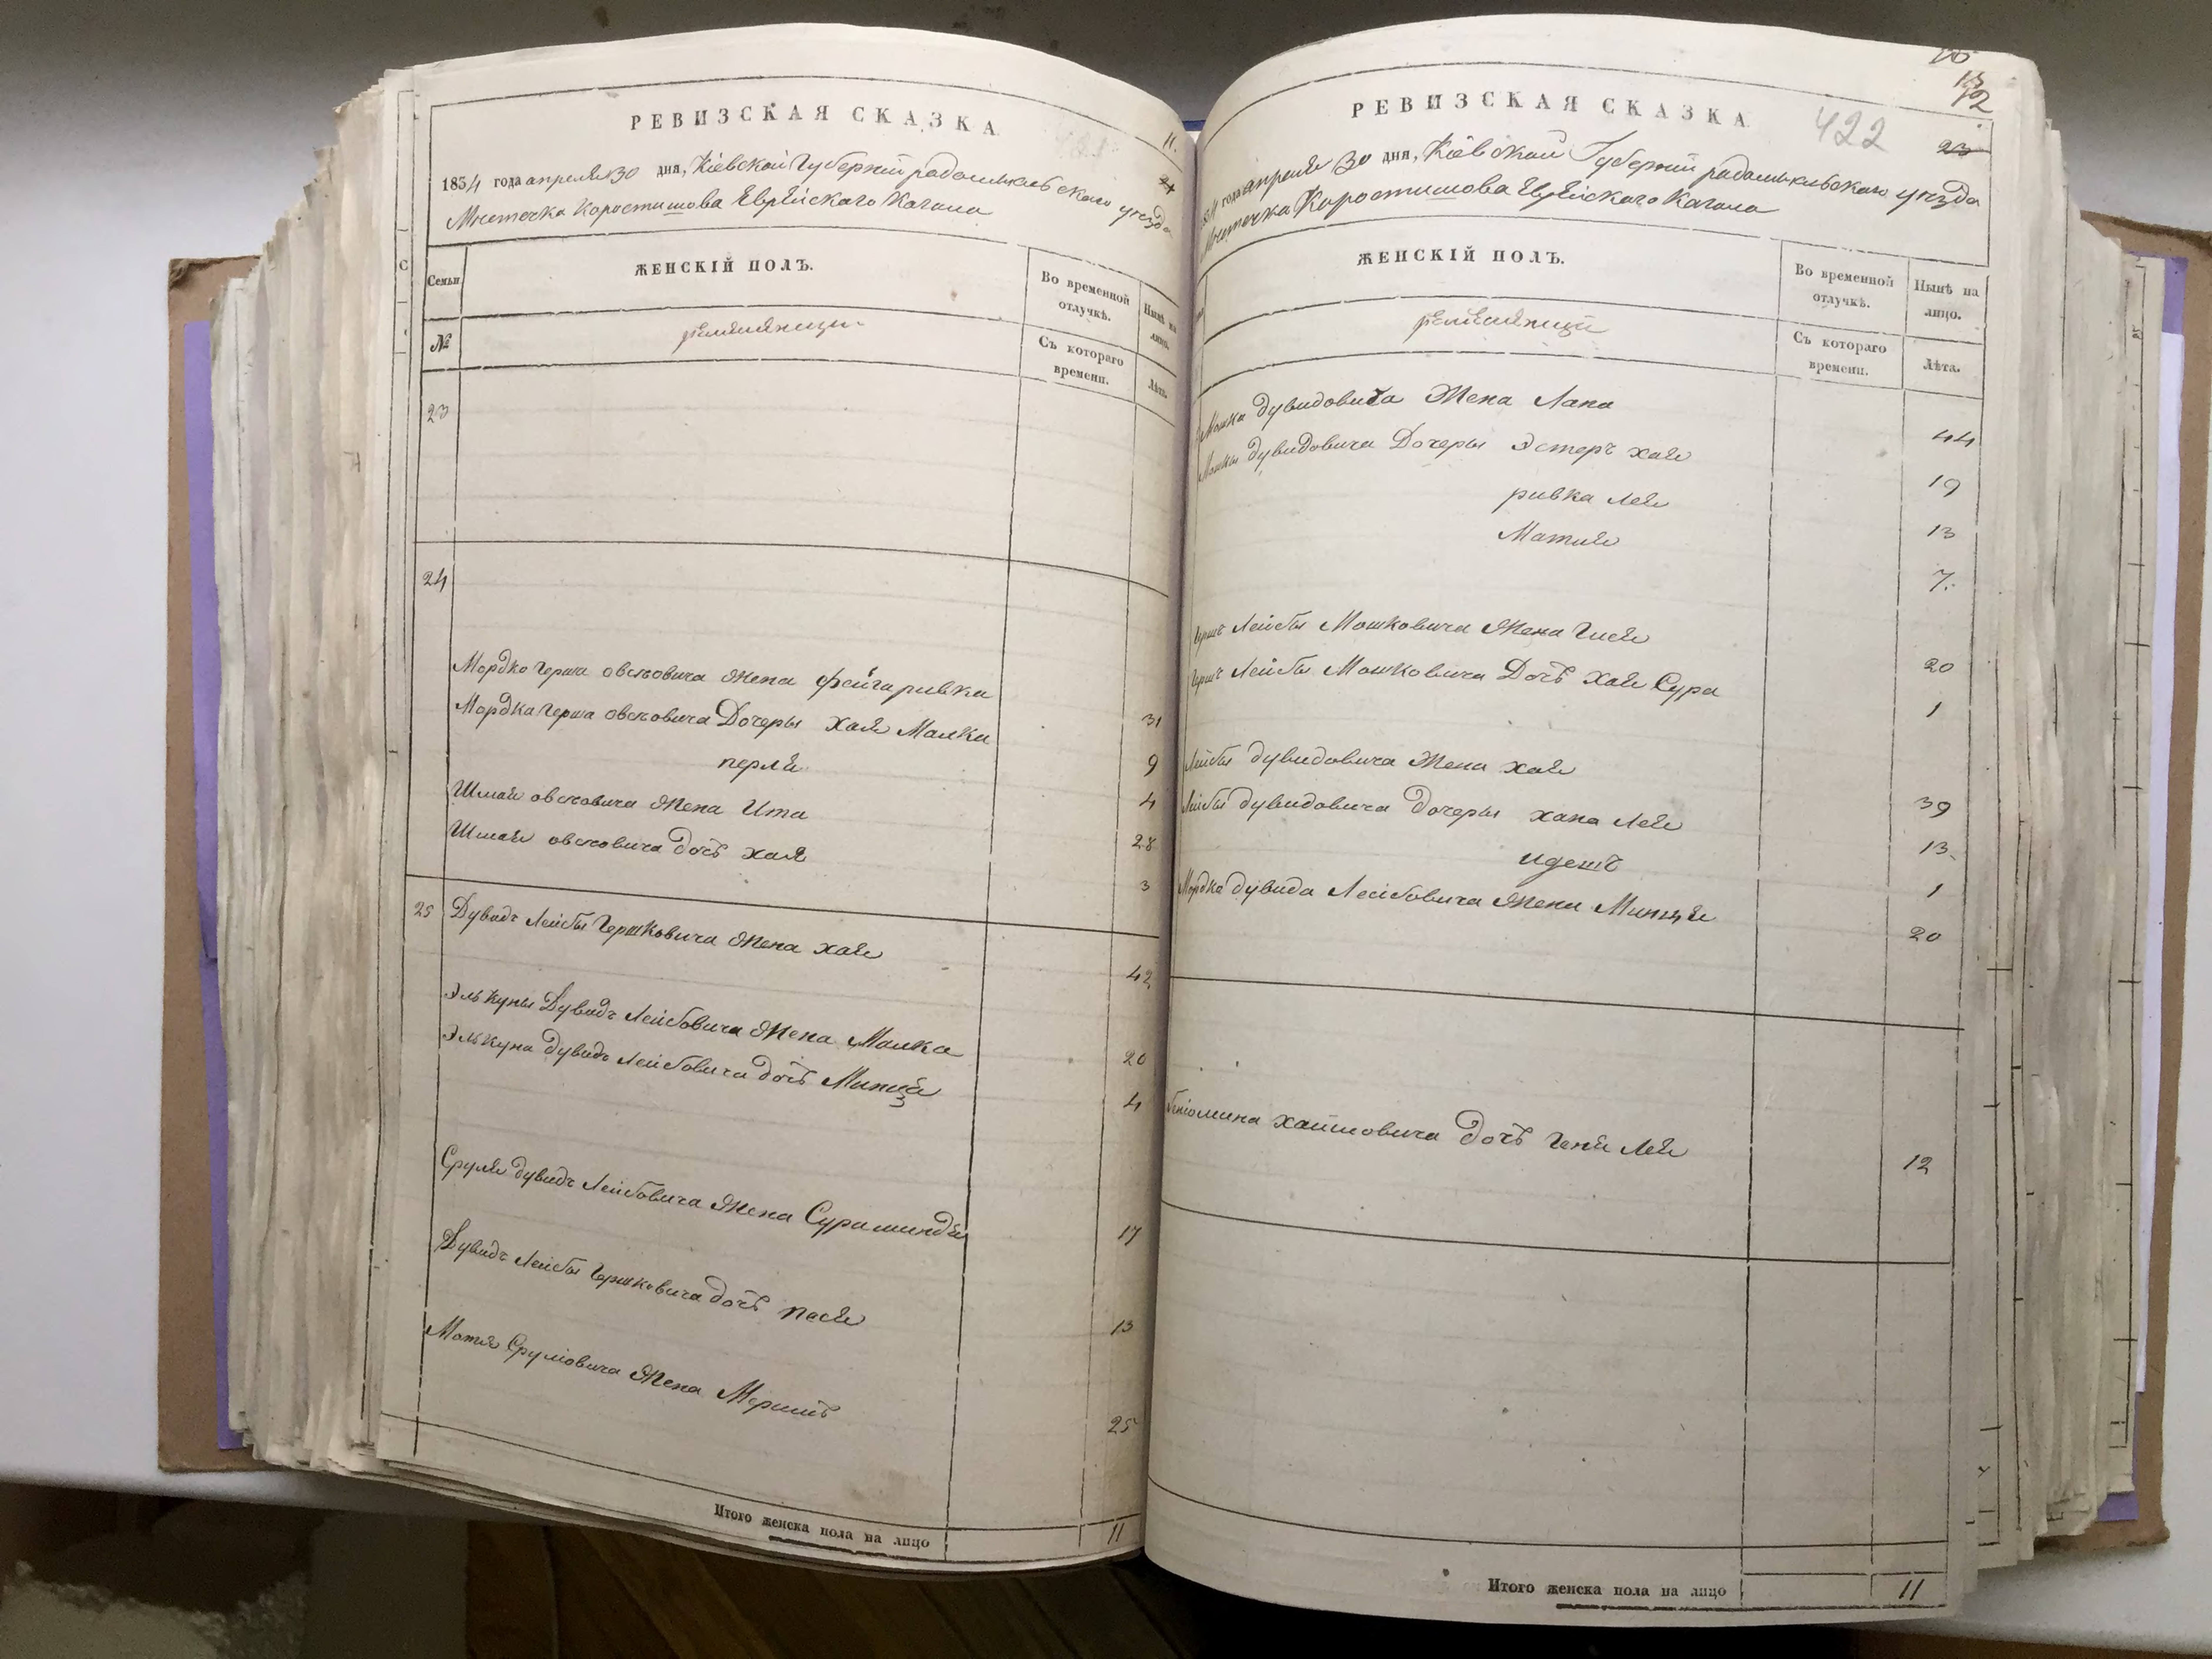 РЕВИЗСКАЯ СКАЗКА
11.
1854 года апреля 30 дня, Кіевской Губерніи радомысльского уѣзда
Мѣстечка Коростишова Еврейскаго Кагала
Семьи
ЖЕНСКІЙ ПОЛЪ.
Во временной отлучкѣ.
Нынѣ на лицо.
№
Съ котораго времени.
Лѣта.
23
24
Мордко Герша овсеовича Жена фейга ривка 31
Мордка Герша овсеовича Дочеры хая Малка 9
перля 4
Шмаи овсеовича Жена Ита 28
Шмаи овсеовича дочь хая 3
25 Дувидъ Лейбы Гершковича Жена хая 42
Элькуны Дувидъ Лейбовича Жена Малка 20
Элькуна дувидъ Лейбовича дочь 4
Сруля дувидъ Лейбовича Жена Сура миндля 17
Дувидъ Лейбы Гершковича дочь песя 13
Мотя Сруліовича Жена 25
Итого женска пола на лицо 11
РЕВИЗСКАЯ СКАЗКА
422
12
23
1854 года апреля 30 дня, Кіевской Губерніи радомысльскаго уѣзда
Мѣстечка Коростишова Еврейскаго Кагала
ЖЕНСКІЙ ПОЛЪ.
Во временной отлучкѣ.
Нынѣ на лицо.
Съ котораго времени.
Лѣта.
Мошка дувидовича Жена Лапа 44
Мошка дувидовича Дочеры Эстеръ хая 19
ривка лея 13
Матля 7.
Лейбы Мошковича Жена Гися 20
Лейбы Мошковича Дочь хая Сура 1
Лейбы дувидовича Жена хая 39
Лейбы дувидовича дочеры хана лея 13
идесъ 1
Мордка дувида Лейбовича Жена Минця 20
беніомина хаимовича дочь Геня лея 12
Итого женска пола на лицо 11